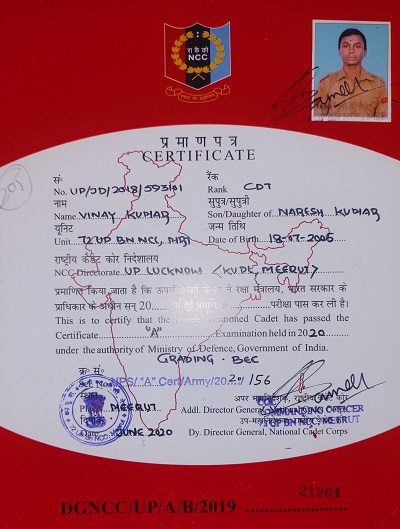 रा कै को
NCC
प्रमाणपत्र
CERTIFICATE
सं०
No. UP/JD/2018/593101
रैंक
Rank CDT
नाम
Name VINAY KUMAR
सुपुत्र/सुपुत्री
Son/Daughter of NARESH KUMAR
यूनिट
Unit 72 UP BN NCC, MRT
जन्म तिथि
Date of Birth 18-07-2005
राष्ट्रीय कैडेट कोर निदेशालय
NCC Directorate UP LUCKNOW (KUDL MEERUT)
प्रमाणित किया जाता है कि ने रक्षा मंत्रालय, भारत सरकार के
प्राधिकार के अधीन सन् 20 परीक्षा पास कर ली है।
This is to certify that the above mentioned Cadet has passed the
Certificate "A" Examination held in 2020
under the authority of Ministry of Defence, Government of India.
GRADING - BEE
क्र० सं०
"A" Cert/Army/20 20/156
स्थान
Place MEERUT
अपर महानिदेशक, राष्ट्रीय कैडेट कोर
Addl. Director General, National Cadet Corps
COMMANDING OFFICER
दिनांक
Date JUNE 2020
Dy. Director General, National Cadet Corps
21264
DGNCC/UP/A/B/2019